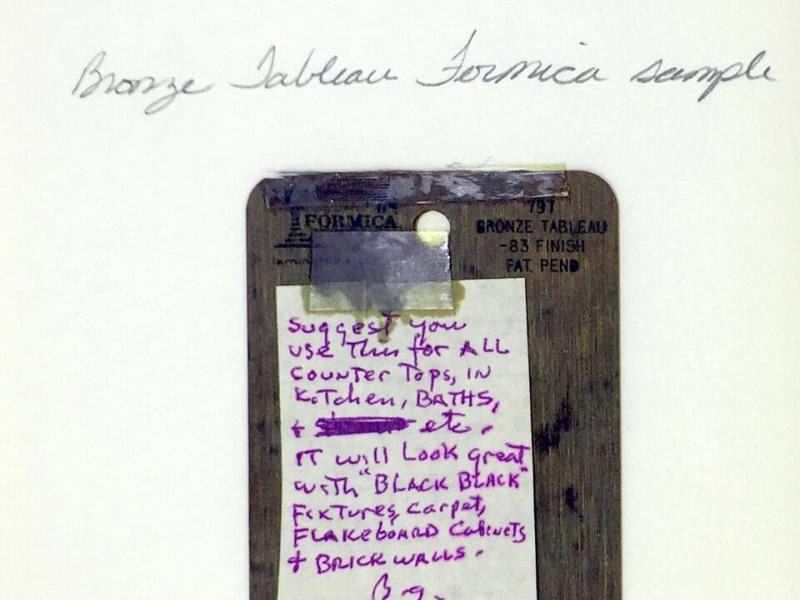 Bronze Tableau Formica sample
FORMICA
797
BRONZE TABLEAU
-83 FINISH
PAT. PEND
Suggest you
use This for ALL
COUNTER Tops, IN
KiTchen, BATHS,
+ etc.
IT will Look great
with "BLACK BLACK"
FixTures, carpet,
FLAKEBOARD CABINETS
+ BRICK WALLS.